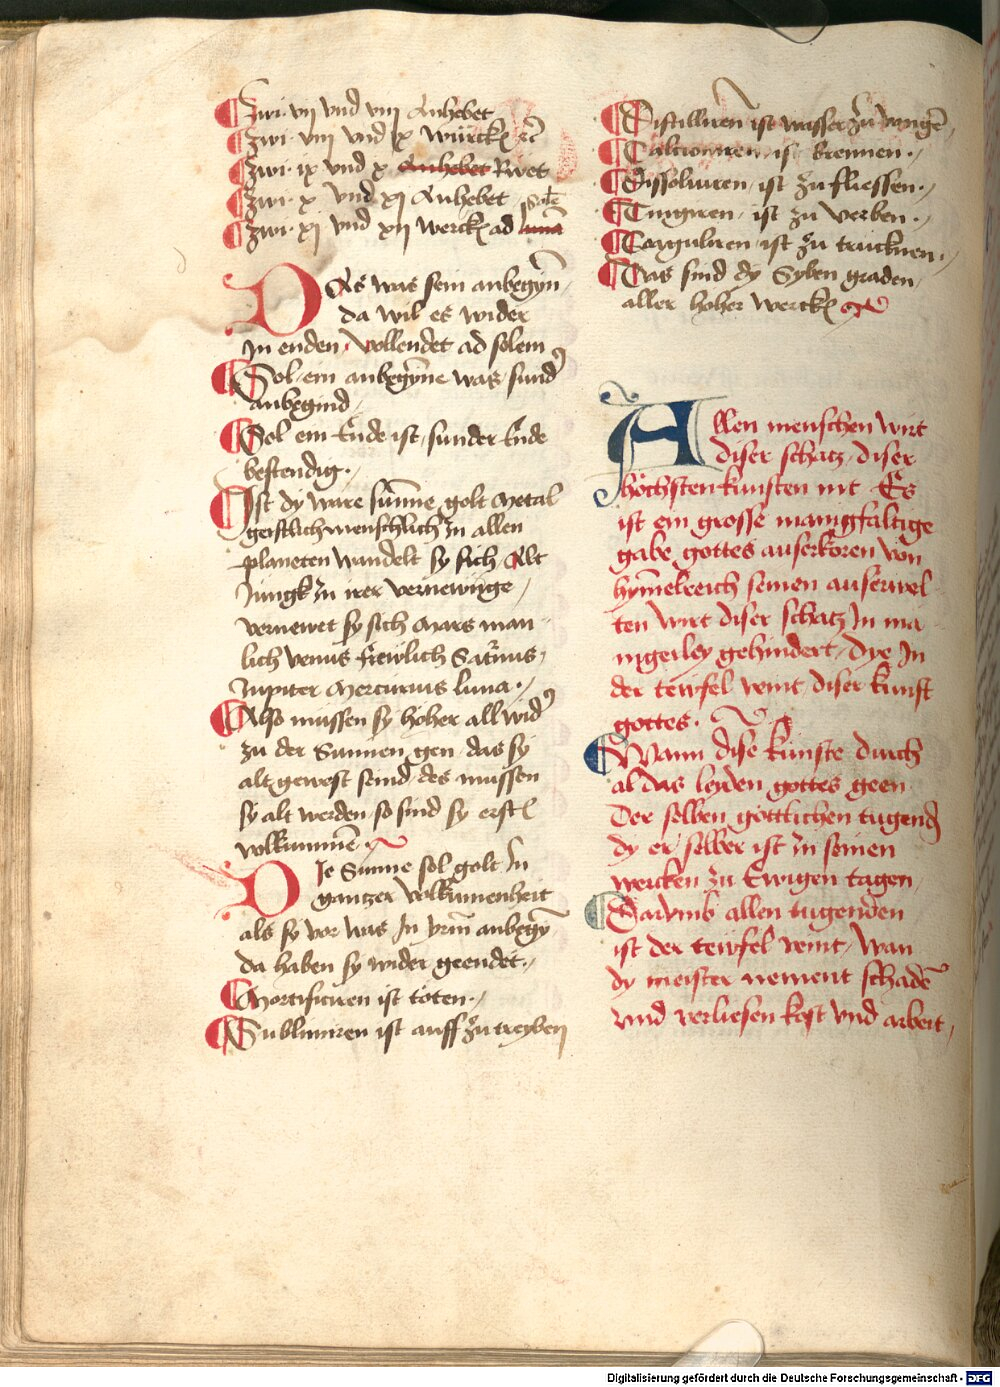 Zwi· vij vnd viij Anhebet
Zwi· viij vnd ix würcken etc
Zwi· ix vnd x Anhebet Rwet
Zwi· x vnd xj Anhebet
Zwi· xj vnd xij wercken ad luna Sole
DAs was sein anbegyn
da wil es wider
In enden· vollendet ad solem
Sol ein anbegynne was sund'
anbegind
Sol ein Ende ist sunder Ende
bestendig·
Ist dy ware sunne golt Metal
geistlich menschlich In allen
planeten wandelt sy sich Alt
Jungk zu irer vernewnge
vernewet sy sich Mars man
lich venus frewlich Saturnus
Jupiter Mercurius luna·
Also mussen sy hoher all wid'
zu der Sunnen gen das sy
alt gewest seind des mussen
sy alt werden so sind sy erst
volkummen
DIe Sunne sol golt In
gantzer volkumenheit
als sy vor was In yrm anbegyn
da haben sy wider geendet·
Mortificiren ist töten·
Sublimiren ist auff zu treyben
Distilliren ist wasser zu
Calcioniren ist brennen·
Dissoluiren ist zu fliessen·
Tingiren ist zu verben·
Coaguliren ist zu trucknen·
Das sind dy Syben graden
aller hoher werck
Allen menschen wirt
diser schatz diser
höchsten kunsten nit Es
ist ein grosse manigfaltige
gabe gottes auserkoren von
hymelreich seinen auserwel
ten wirt diser schatz In ma
nigerley gehindert Dye In
der tewfel veint diser kunst
gottes·
Wann dise künste durch
al das leyden gottes geen
Der selben göttlichen tugend
dy er selber ist In seinen
wercken zu Ewigen tagen
Darvmb allen tugenden
ist der tewfel veint Wan
dy meister nement schaden
vnd verliesen kost vnd arbeit
Digitalisierung gefördert durch die Deutsche Forschungsgemeinschaft - DFG